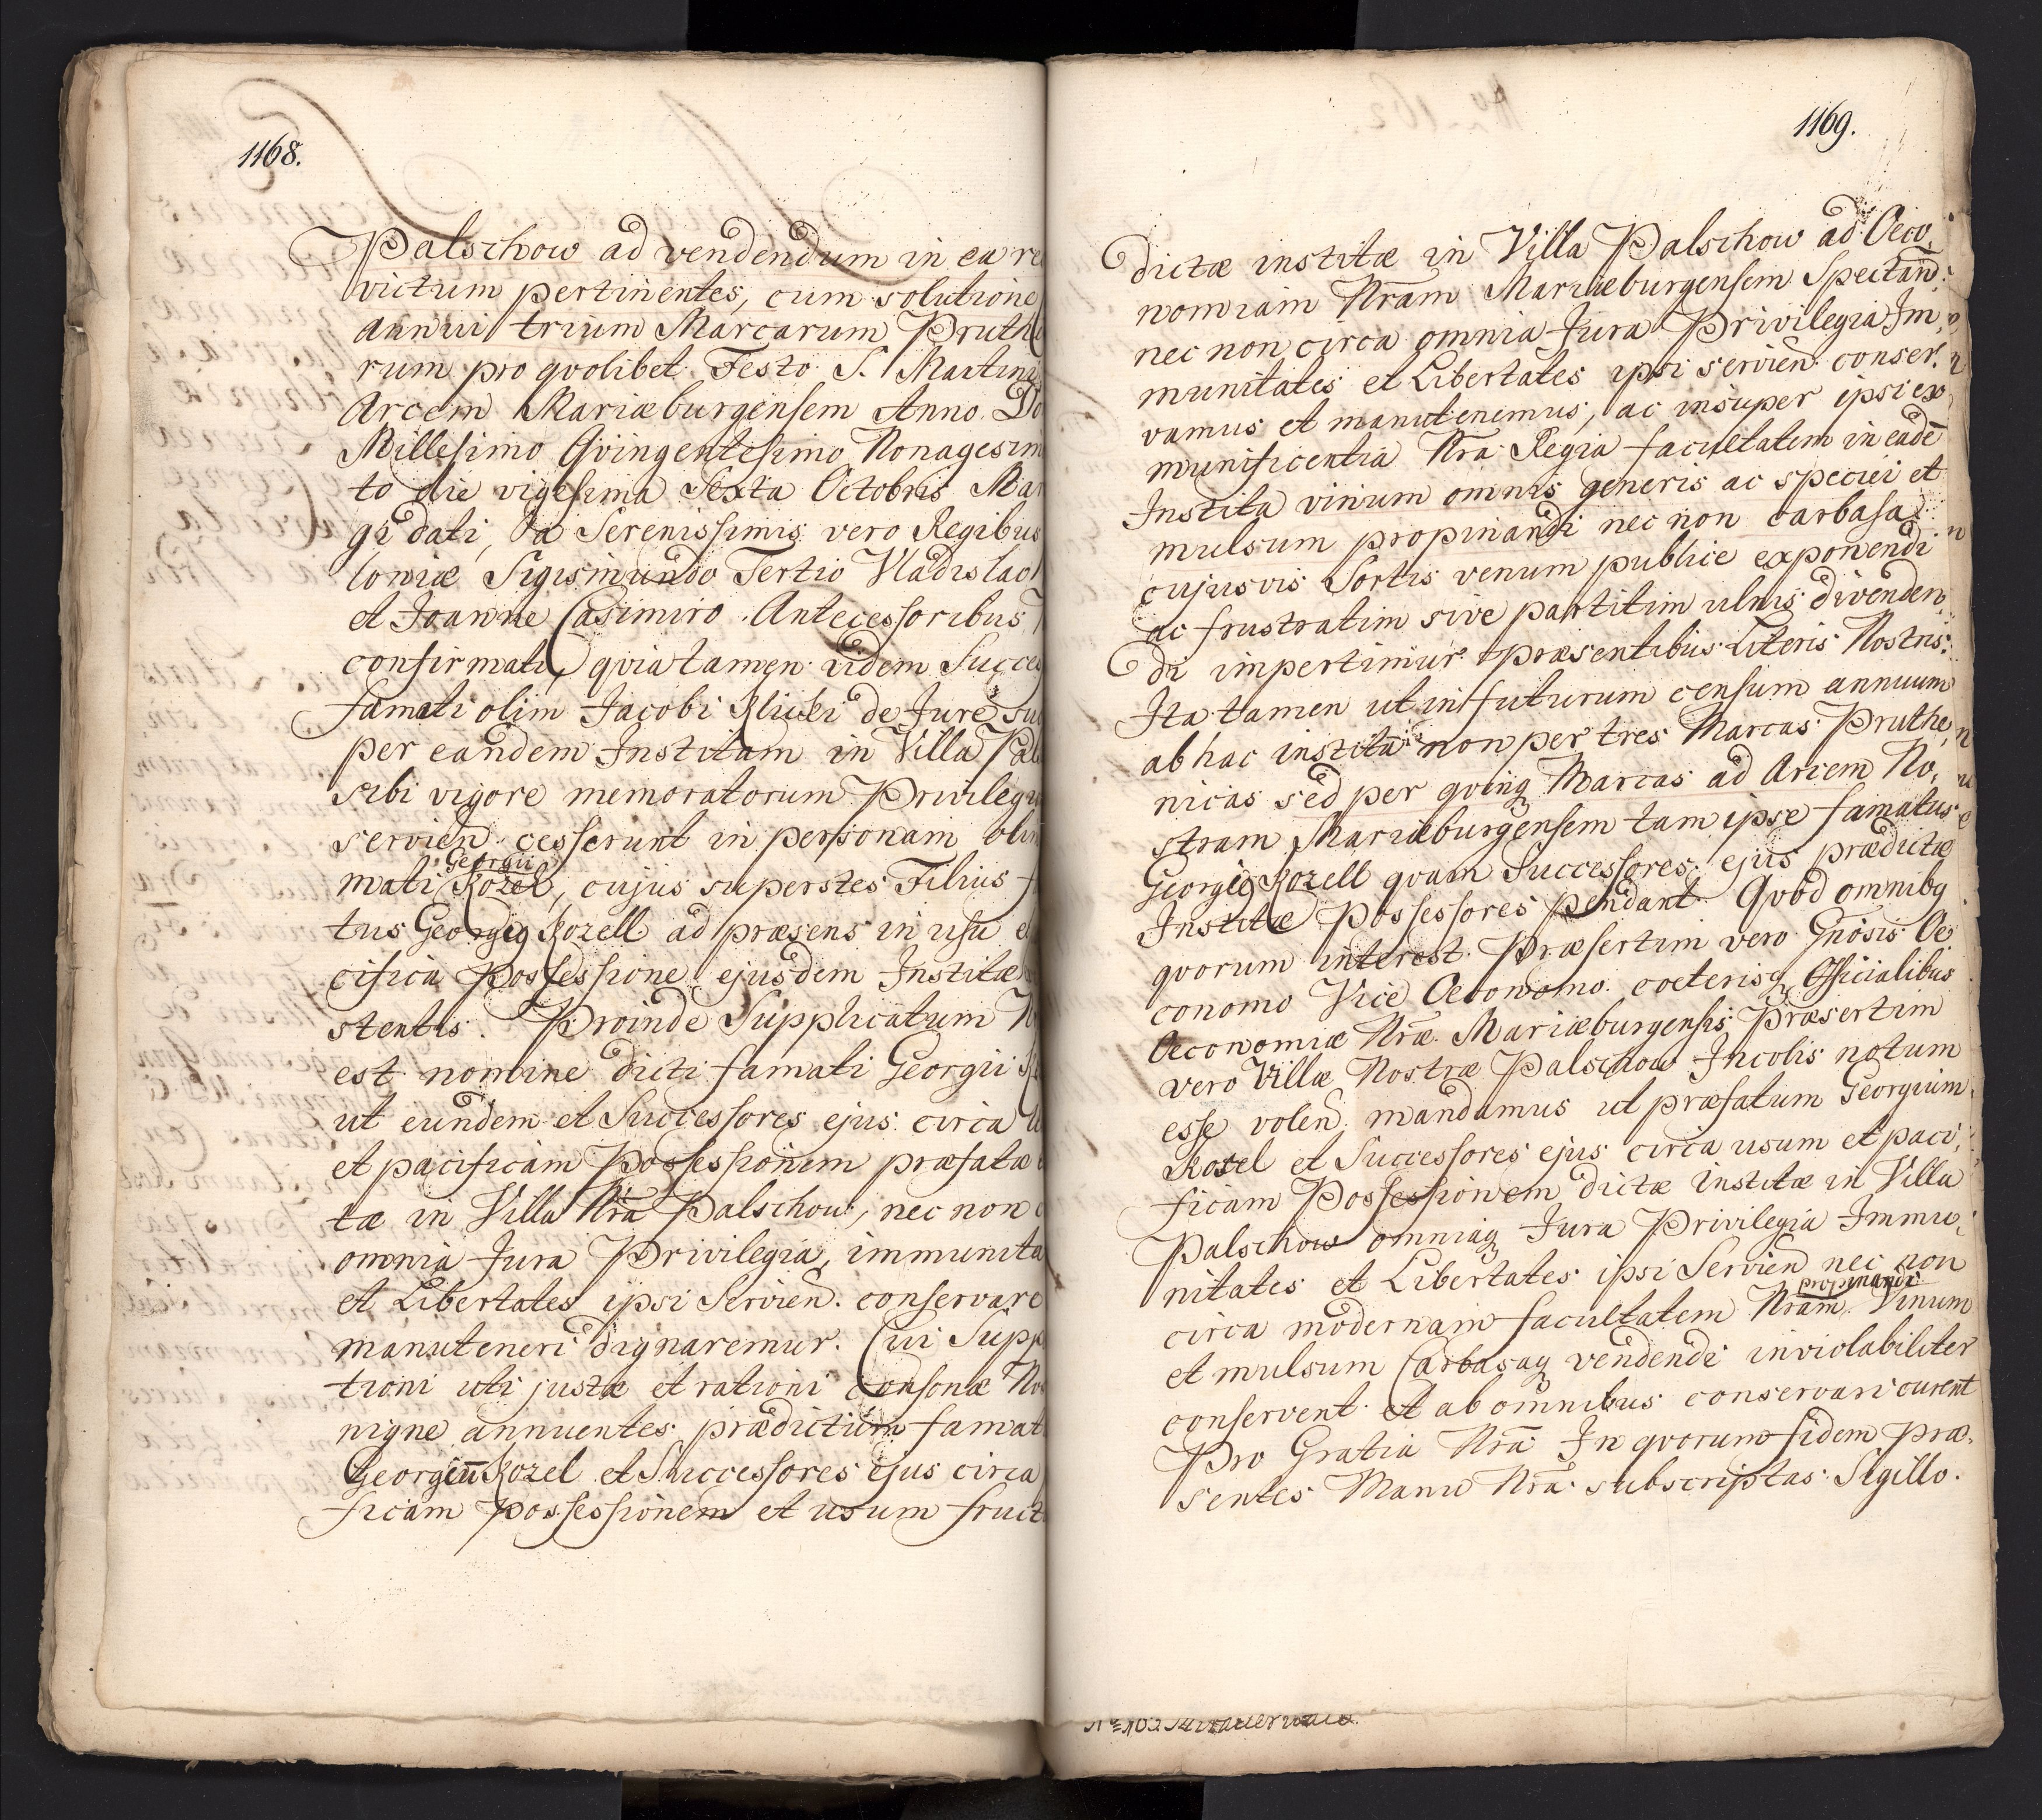 1168.
Palschow ad vendendum in ea re
victum pertinentes, cum solutione
annui trium Marcarum Pruthe
rum pro qvolibet Festo S. Martini
Arcem Mariæburgensem Anno Do
Millesimo Qvingentesimo Nonagesim
to die vigesima Sexta Octobris Mar
gi dati, a Serenissimis vero Regibus
loniæ Sigismundo Tertio Vladislao
et Joanne Casimiro Antecessoribus
confirmati, qvia tamen iidem Succes
famati olim Jacobi Klicki de Jure su
per eandem Institam in Villa Pals
sibi vigore memoratorum Privilegi
servien. cesserunt in personam olim
mati Georgii Kozel, cujus superstes Filius f
tus Georgiq Kozell ad præsens in usu e
cifica Possessione ejusdem Institæ
stentis. Proinde Supplicatum N
est nomine dicti famati Georgii K
ut eundem et Successores ejus circa u
et pacificam Possessionem præfatæ
tæ in Villa Nrã Palschow, nec non c
omnia Jura Privilegia, immunita
et Libertates ipsi Servien. conservare
manuteneri dignaremur. Cui Supp
tioni uti justæ et rationi consonæ No
nigne annuentes prædictum famat
Georgiũ Kozel et Successores ejus circa
ficam possessionem et usum fruct
1169.
dictæ institæ in Villa Palschow ad Oeco,
nomiam Nram Mariæburgensem Spectañ.
nec non circa omnia Jura Privilegia Im,
munitates et Libertates ipsi servien. conser,
vamus et manutenemus, ac insuper ipsi ex
munificentia Nrã Regia facultatem in eadẽ
Instita vinum omnis generis ac speciei et
mulsum propinandi nec non carbasa
cujusvis Sortis venum publice exponendi
ac frustratim sive partitim ulnis divenden,
di impertimur præsentibus Literis Nostris.
Ita tamen ut in futurum censum annuum
ab hac instita non per tres Marcas Pruthe,
nicas sed per qvinq Marcas ad Arcem No,
stram Mariæburgensem tam ipse famatus
Georgiq Kozell qvam Successores ejus prædictæ
Institæ Possessores pendant. Qvod omnibq
qvorum interest. Præsertim vero Gnosis Oe
conomo Vice Oeconomo coeterisq Officialibus
Oeconomiæ Nræ Mariæburgensis, Præsertim
vero Villæ Nostræ Palschow Incolis notum
esse volen. mandamus ut præfatum Georgium
Kosel et Successores ejus circa usum et paci,
ficam Possessionem dictæ institæ in Villa
Palschow omniaq Jura Privilegia Immu,
nitates et Libertates ipsi Servien. nec non
circa modernam facultatem Nram propinandi Vinum
et mulsum Carbasaq vendendi inviolabiliter
conservent et ab omnibus conservari curent
Pro Gratia Nrã. In qvorum fidem præ,
sentes Manu Nrã subscriptas Sigillo.